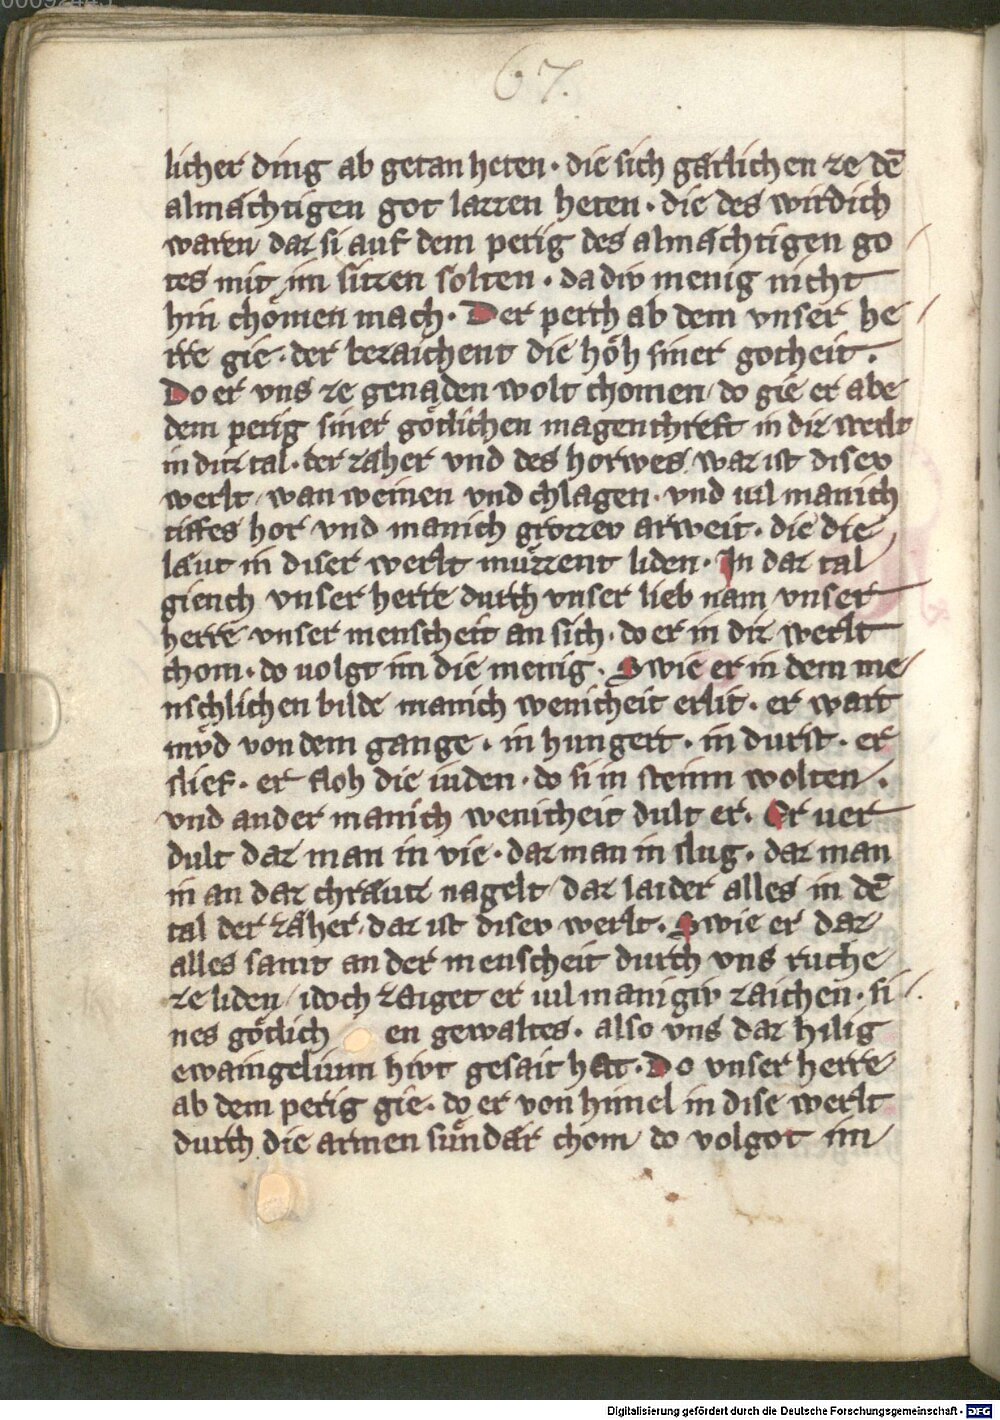 67.
licher ding ab getan heten · die sich gaͤrlichen ze dē
almaͤchtigen got lazzen heten · die des wirdich
waren daz si auf dem perig des almaͤchtigen go
tes mit im sitzen solten · da div menig nicht
hin chomen mach · Der perch ab dem vnser he
rre gie · der bezaichent die hoͤh siner gotheit .
Do er vns ze genaden wolt chomen do gie er abe
dem perig siner goͤtlichen magenchreft in dize werlt
in ditz tal · der zaͤher vnd des horwes waz ist disev
werlt wan weinen vnd chlagen · vnd uil manich
tiffes hor vnd manich grozzev arweit · die die
laͤut in diser werlt muͤzzent liden · In daz tal
giench vnser herre durch vnser lieb nam vnser
herre vnser menscheit an sich · do er in die werlt
chom · do uolgt im die menig · Swie er in dem me
nschlichen bilde manich wenicheit erlit · er wart
muͤd von dem gange · in hungert · in durst · er
slief · er floh die iuden · do si in steinn wolten .
vnd ander manich wenicheit dult er · Er uer
dult daz man in vie · daz man in slug · daz man
in an daz chraͤutz nagelt daz laider alles in dē
tal der zaͤher daz ist disev werlt · Swie er daz
alles samt an der menscheit durch vns ruche
ze liden idoch zaiget er uil manigiv zaichen · si
nes goͤtlich en gewaltes · also vns daz hilig
ewaingelium hivt gesait hat · Do vnser herre
ab dem perig gie · do er von himel in dise werlt
durch die armen suͤndaͤr chom do volgot im
Digitalisierung gefördert durch die Deutsche Forschungsgemeinschaft - DFG